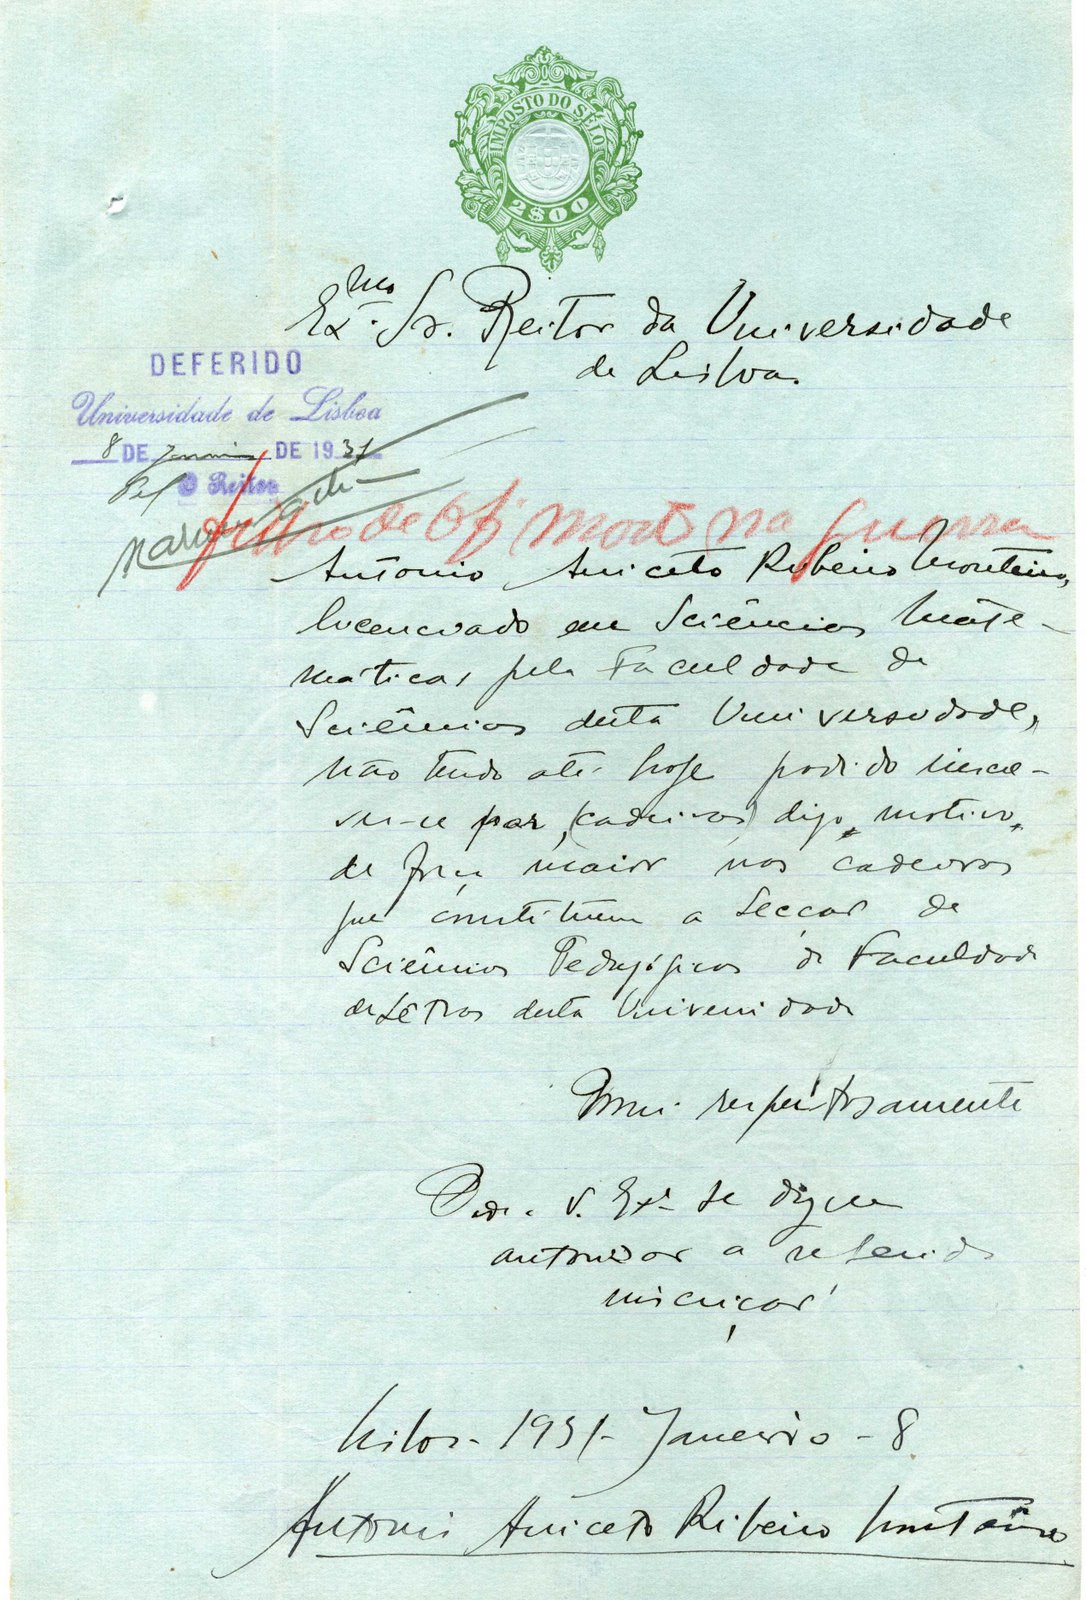 IMPOSTO DO SELO
2$00
Exmo. Sr. Reitor da Universidade
de Lisboa.
DEFERIDO
Universidade de Lisboa
8 DE Janeiro DE 1931
Pel O Reitor
filho de Of. morto na guerra
António Aniceto Ribeiro Monteiro,
licenciado em Sciências Mate-
máticas pela Faculdade de
Sciências desta Universidade,
não tendo até hoje pedido inscre-
ver-se por, (cadeiras) digo, motivo,
de força maior nas cadeiras
que constituem a Secção de
Sciências Pedagógicas da Faculdade
de Letras desta Universidade
Mui respeitosamente
Pede a V. Exa. se digne
autorizar a referida
inscrição
Lisboa - 1931 - Janeiro - 8
António Aniceto Ribeiro Monteiro